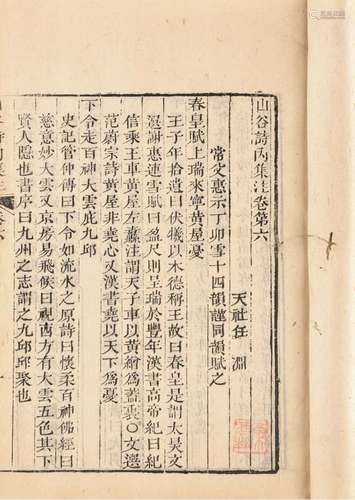 山谷詩內集注卷第六
天社任 淵
常父惠示丁卯雪十四韻謹同韻賦之
春皇賦上瑞來寧黃屋憂
王子年拾遺曰伏犧以木德稱王故曰春皇是謂太昊文
選謝惠連雪賦曰盈尺則呈瑞於豐年漢書高帝紀曰紀
信乘王車黃屋左纛注謂天子車以黃繒爲蓋裏○文選
范蔚宗詩黃屋非堯心又漢書堯以天下爲憂
下令走百神大雲庇九邱
史記管仲傳曰下令如流水之原詩曰懷柔百神佛經曰
慈意妙大雲又京房易飛候曰視西方有大雲五色其下
賢人隱也書序曰九州之志謂之九邱邱聚也